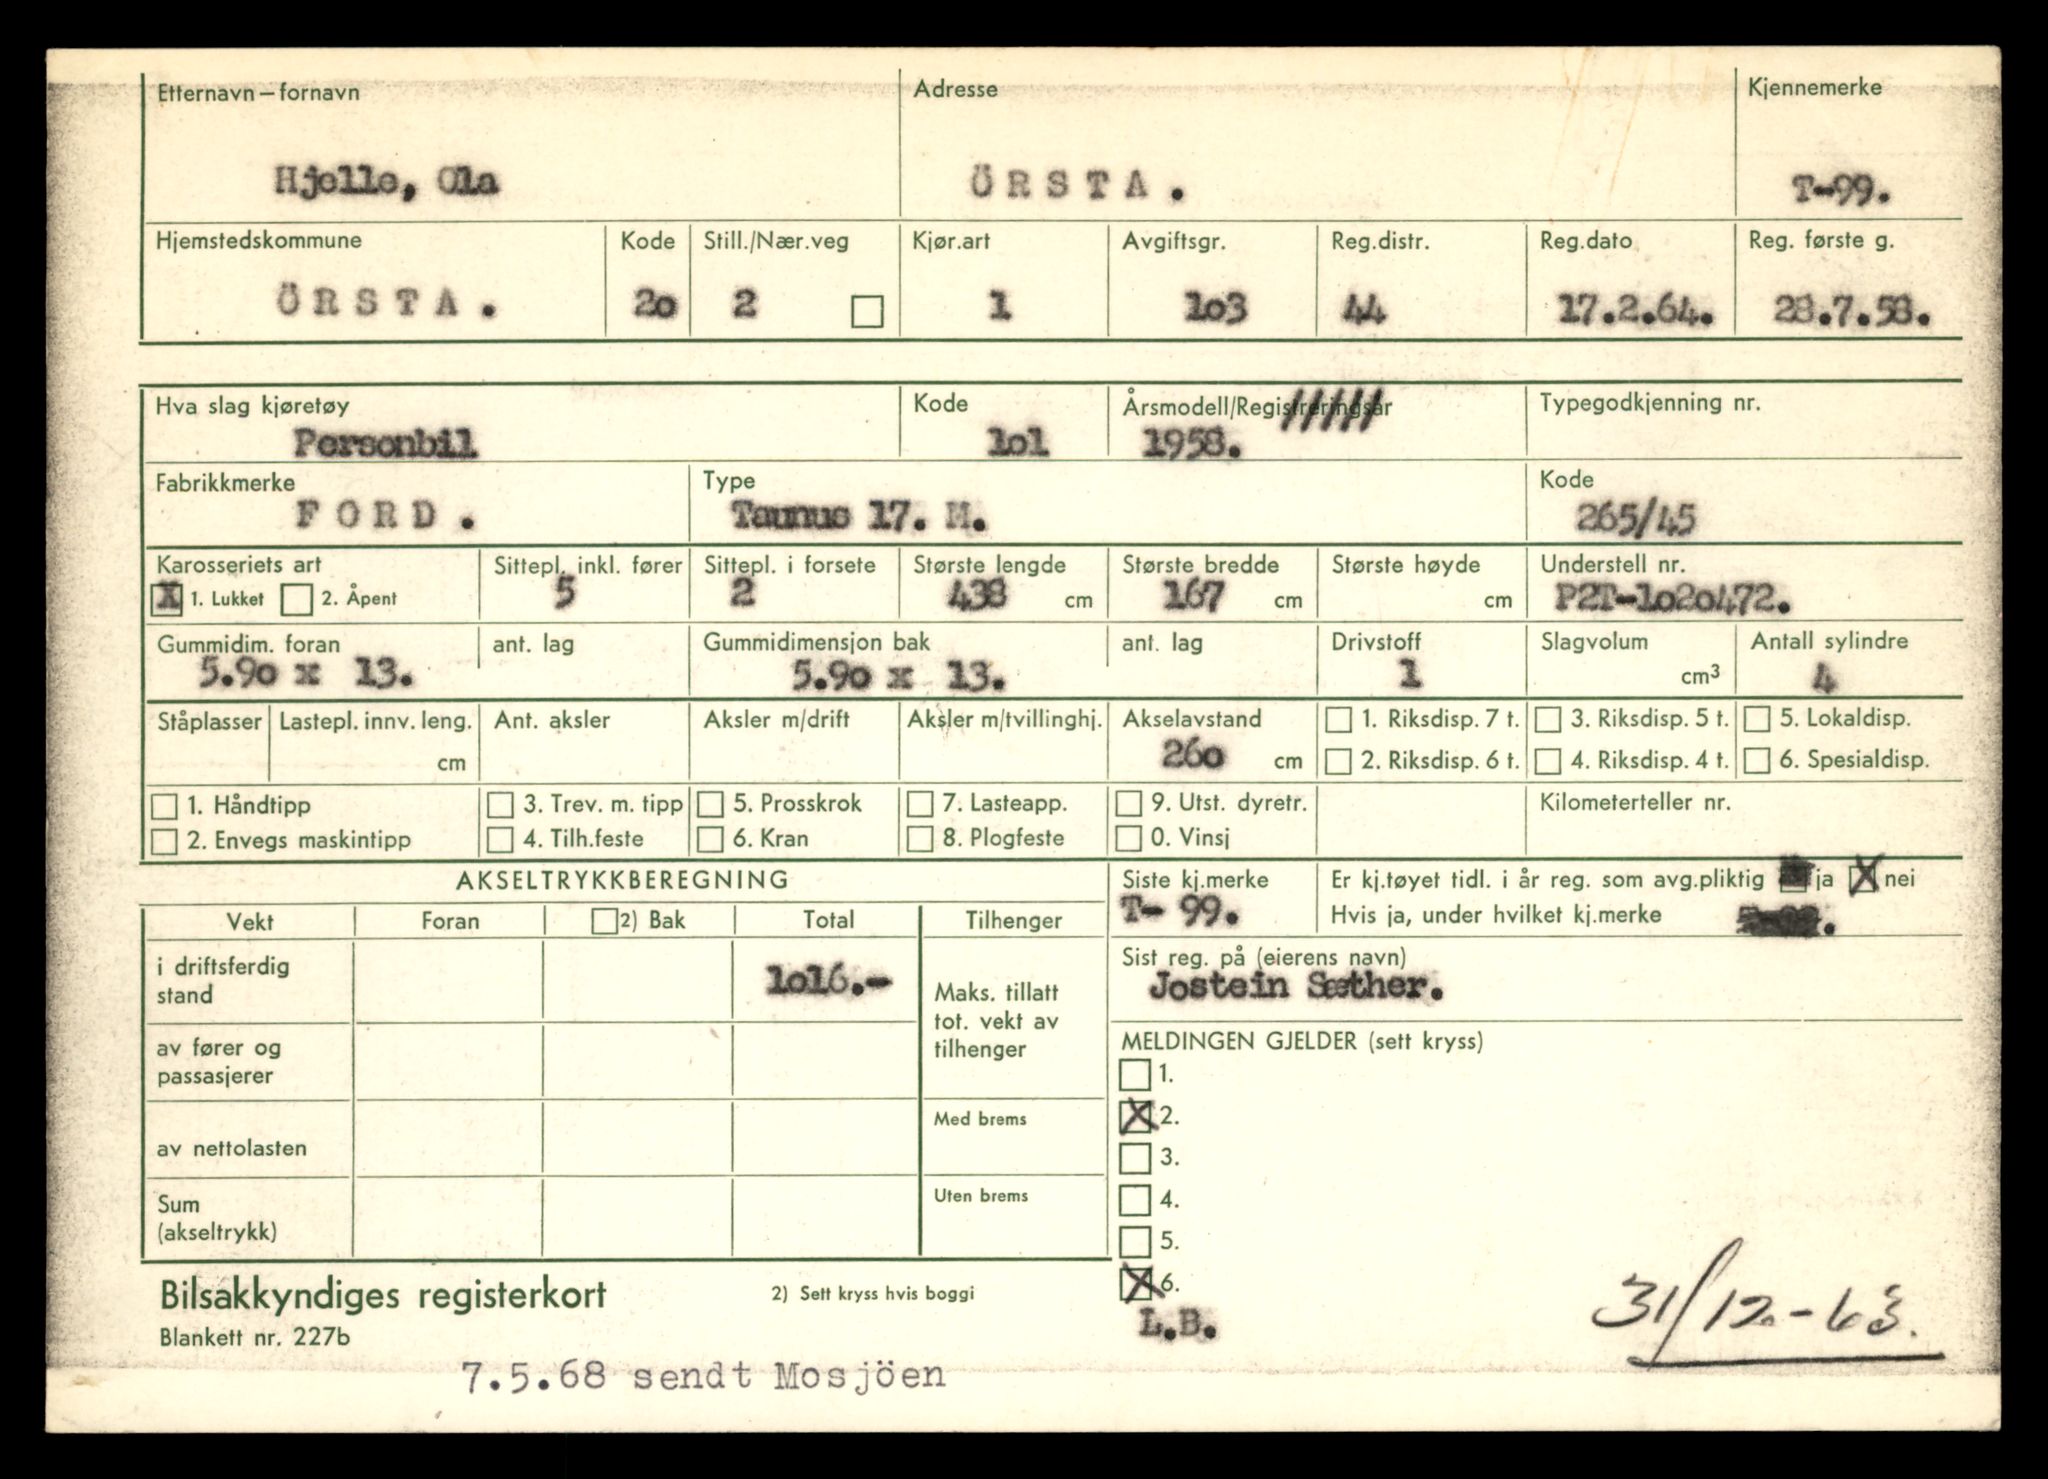 Etternavn – fornavn Adresse Kjennemerke
Hjelle, Ola ÖRSTA. T-99.
Hjemstedskommune Kode Still./Nær.veg Kjør.art Avgiftsgr. Reg.distr. Reg.dato Reg. første g.
ÖRSTA. 2o 2 1 1o3 44 17.2.64. 28.7.58.
Hva slag kjøretøy Kode Årsmodell/Registreringsår Typegodkjenning nr.
Personbil 1o1 1958.
Fabrikkmerke Type Kode
FORD. Taunus 17. M. 265/45
Karosseriets art Sittepl. inkl. fører Sittepl. i forsete Største lengde Største bredde Største høyde Understell nr.
X 1. Lukket 2. Åpent 5 2 438 cm 167 cm cm P2T-1o2o472.
Gummidim. foran ant. lag Gummidimensjon bak ant. lag Drivstoff Slagvolum Antall sylindre
5.9o x 13. 5.9o x 13. 1 cm³ 4
Ståplasser Lastepl. innv. leng. Ant. aksler Aksler m/drift Aksler m/tvillinghj. Akselavstand 1. Riksdisp. 7 t. 3. Riksdisp. 5 t. 5. Lokaldisp.
cm 26o cm 2. Riksdisp. 6 t. 4. Riksdisp. 4 t. 6. Spesialdisp.
1. Håndtipp 3. Trev. m. tipp 5. Prosskrok 7. Lasteapp. 9. Utst. dyretr. Kilometerteller nr.
2. Envegs maskintipp 4. Tilh.feste 6. Kran 8. Plogfeste 0. Vinsj
AKSELTRYKKBEREGNING Siste kj.merke Er kj.tøyet tidl. i år reg. som avg.pliktig ja X nei
T- 99. Hvis ja, under hvilket kj.merke
Vekt Foran 2) Bak Total Tilhenger
Sist reg. på (eierens navn)
Jostein Sæther.
i driftsferdig stand 1o16.- Maks. tillatt tot. vekt av tilhenger
av fører og passasjerer
MELDINGEN GJELDER (sett kryss)
1.
X 2.
av nettolasten Med brems
3.
4.
Sum (akseltrykk) Uten brems
5.
X 6.
Bilsakkyndiges registerkort 2) Sett kryss hvis boggi
L.B.
Blankett nr. 227b
7.5.68 sendt Mosjöen